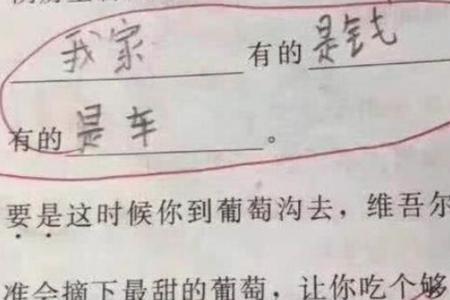 我家有的是钱
有的是车。
要是这时候你到葡萄沟去，维吾尔
准会摘下最甜的葡萄，让你吃个够